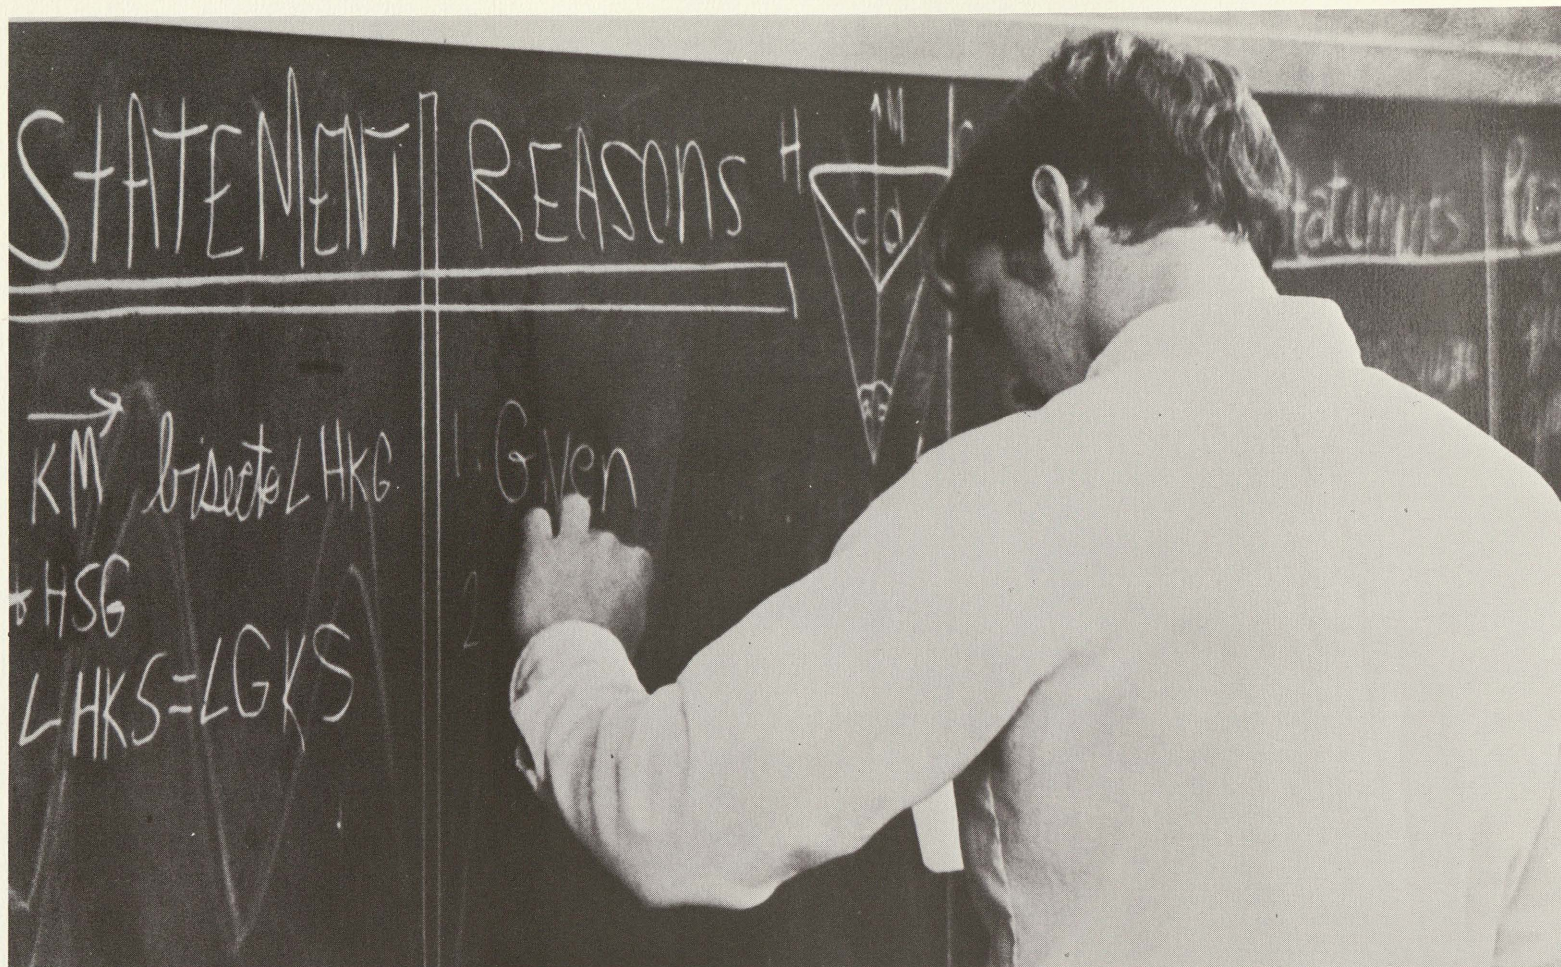 STATEMENT REASONS
KM bisects ∠HKG 1. Given
HSG 2
∠HKS=∠GKS
H M
c d